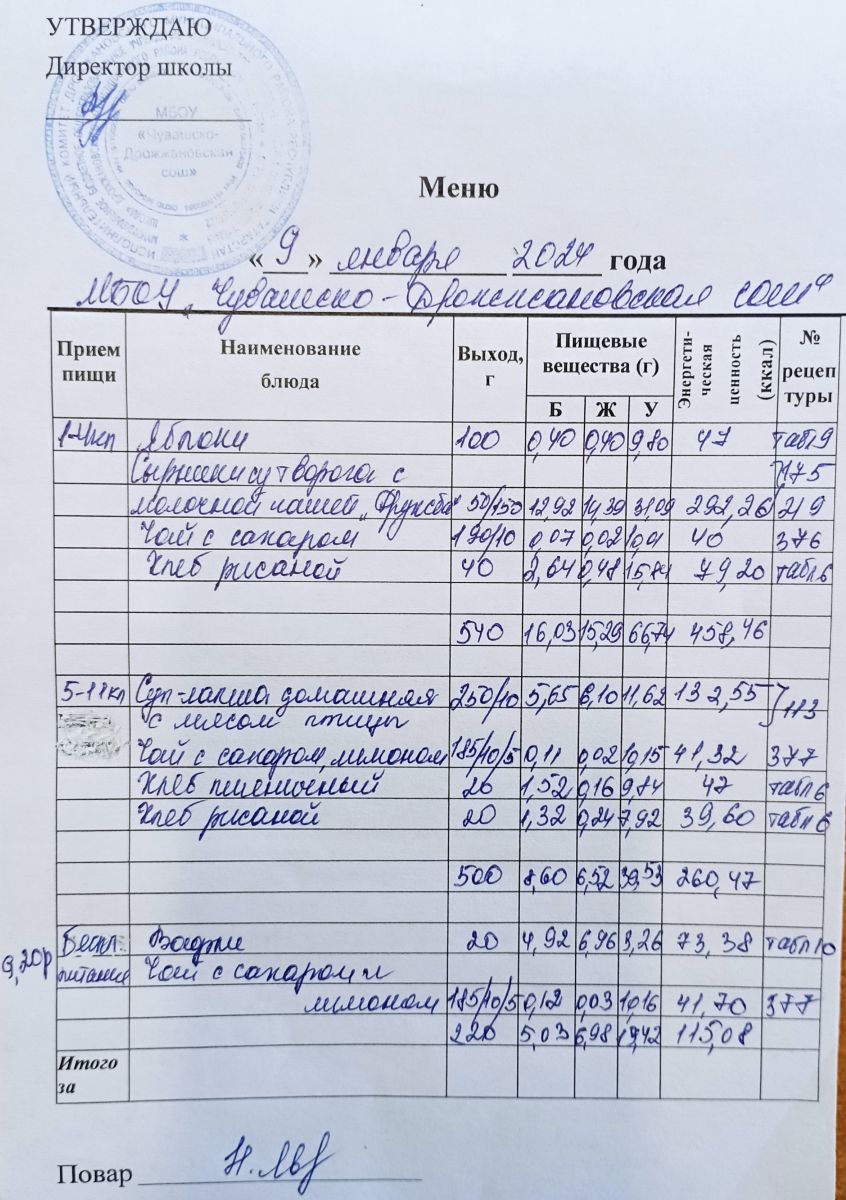 УТВЕРЖДАЮ
Директор школы
МБОУ
«Чувашско-
Дрожжановская
сош»
Меню
«9» января 2024 года
МБОУ „Чувашско-Дрожжановская сош“
Прием пищи Наименование блюда Выход, г Пищевые вещества (г) Энергети-ческая ценность (ккал) № рецеп туры
Б Ж У
1-4кл Яблоки 100 0,40 0,40 9,80 47 табл9
Сырники с творога с 175
молочной кашей „Дружба“ 50/150 12,92 14,39 31,09 292,26 219
Чай с сахаром 190/10 0,07 0,02 10,01 40 376
Хлеб ржаной 40 2,64 0,48 15,84 79,20 табл6
540 16,03 15,29 66,74 458,46
5-11кл Суп-лапша домашняя 250/10 5,65 6,10 11,62 132,55 113
с мясом птицы
Чай с сахаром, лимоном 185/10/5 0,11 0,02 10,15 41,32 377
Хлеб пшеничный 20 1,52 0,16 9,84 47 табл6
Хлеб ржаной 20 1,32 0,24 7,92 39,60 табл6
500 8,60 6,52 39,53 260,47
9,20р Беспл. Вафли 20 4,92 6,96 3,26 73,38 табл10
питание Чай с сахаром и
лимоном 185/10/5 0,12 0,03 10,16 41,70 377
220 5,03 6,98 13,42 115,08
Итого за
Повар